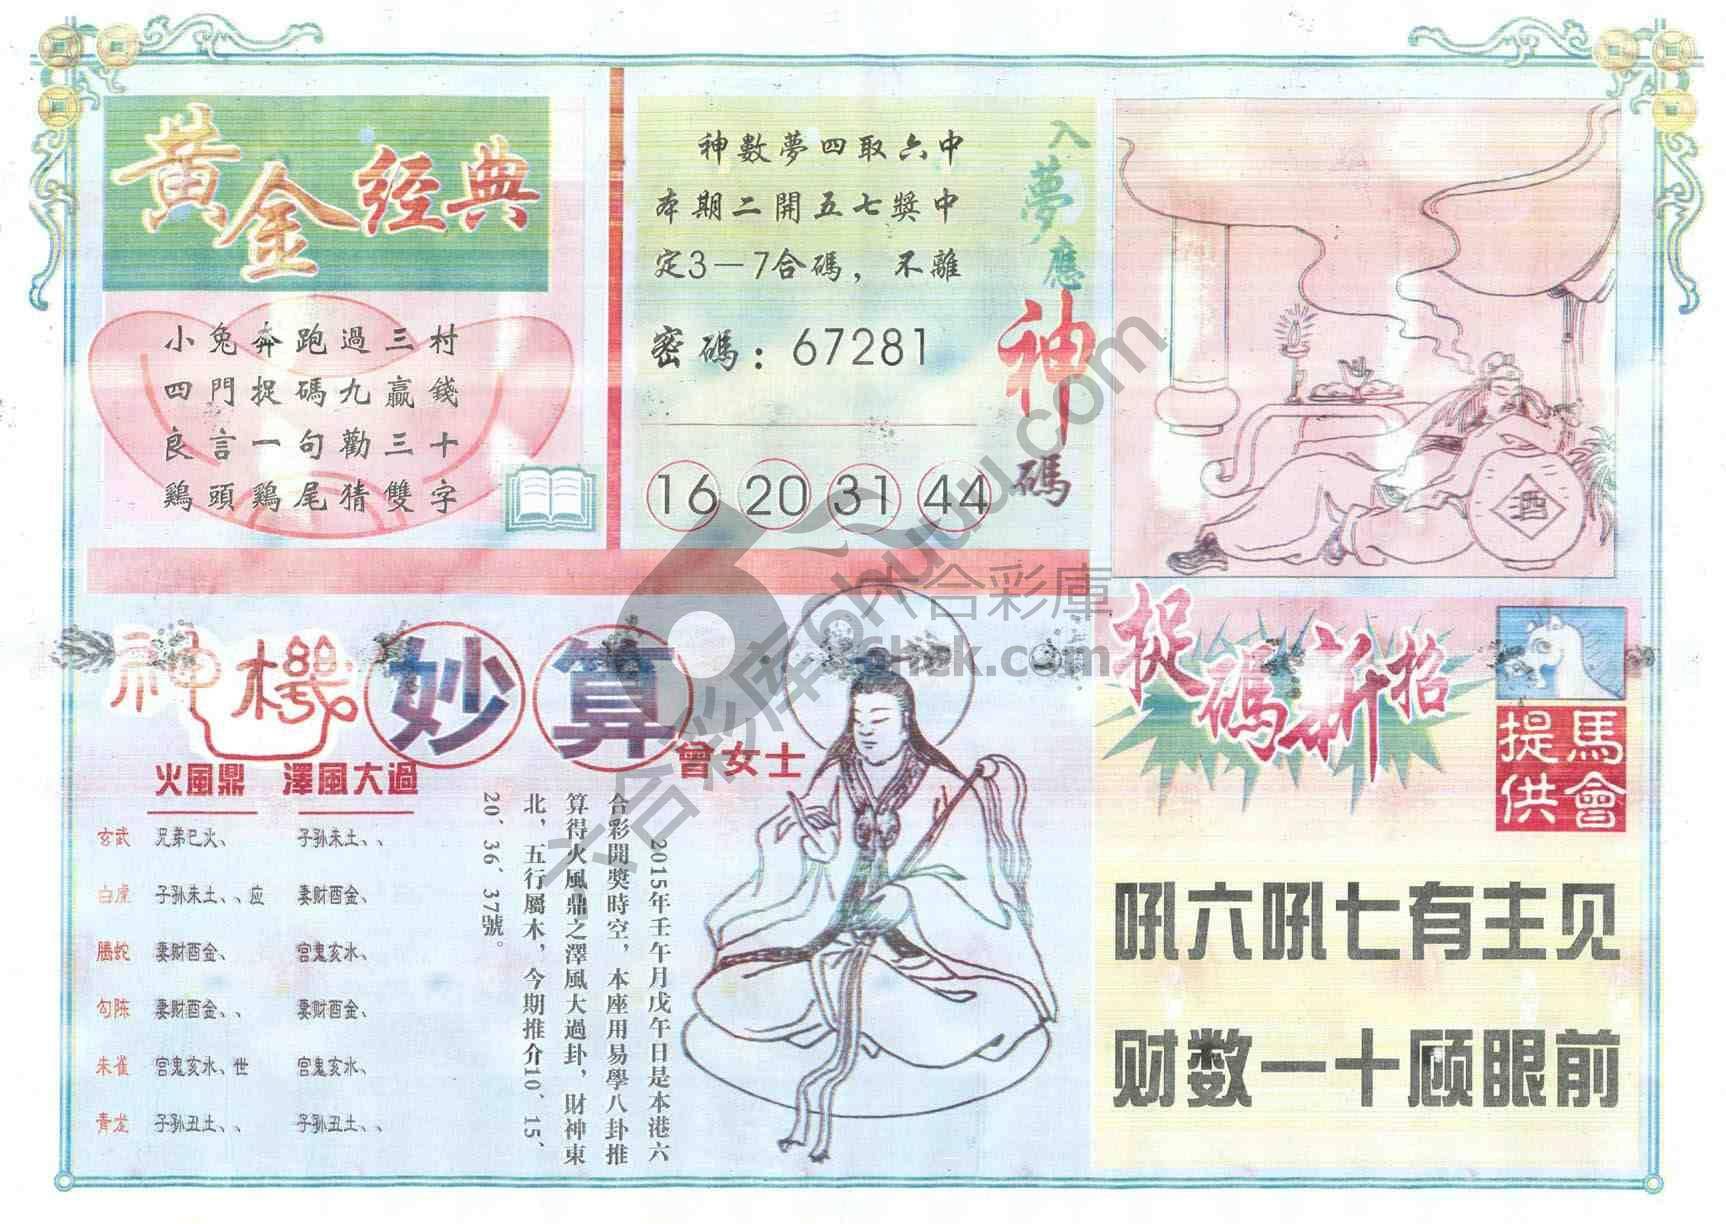 黃金经典
小兔奔跑過三村
四門捉碼九贏錢
良言一句勸三十
鷄頭鷄尾猜雙字
神數夢四取六中
本期二開五七獎中
定3—7合碼，不離
密碼：67281
16 20 31 44
入夢應神碼
酒
神機妙算
曾女士
火風鼎 澤風大過
玄武 兄弟巳火、 子孙未土、、
白虎 子孙未土、、应 妻财酉金、
騰蛇 妻财酉金、 宫鬼亥水、
勾陈 妻财酉金、、 妻财酉金、
朱雀 宫鬼亥水、世 宫鬼亥水、
青龙 子孙丑土、、 子孙丑土、、
2015年壬午月戊午日是本港六
合彩開獎時空，本座用易學八卦推
算得火風鼎之澤風大過卦，財神東
北，五行屬木，今期推介10、15、
20、36、37號。
捉碼新招
馬會提供
吼六吼七有主见
财数一十顾眼前
六合彩庫
六合彩库